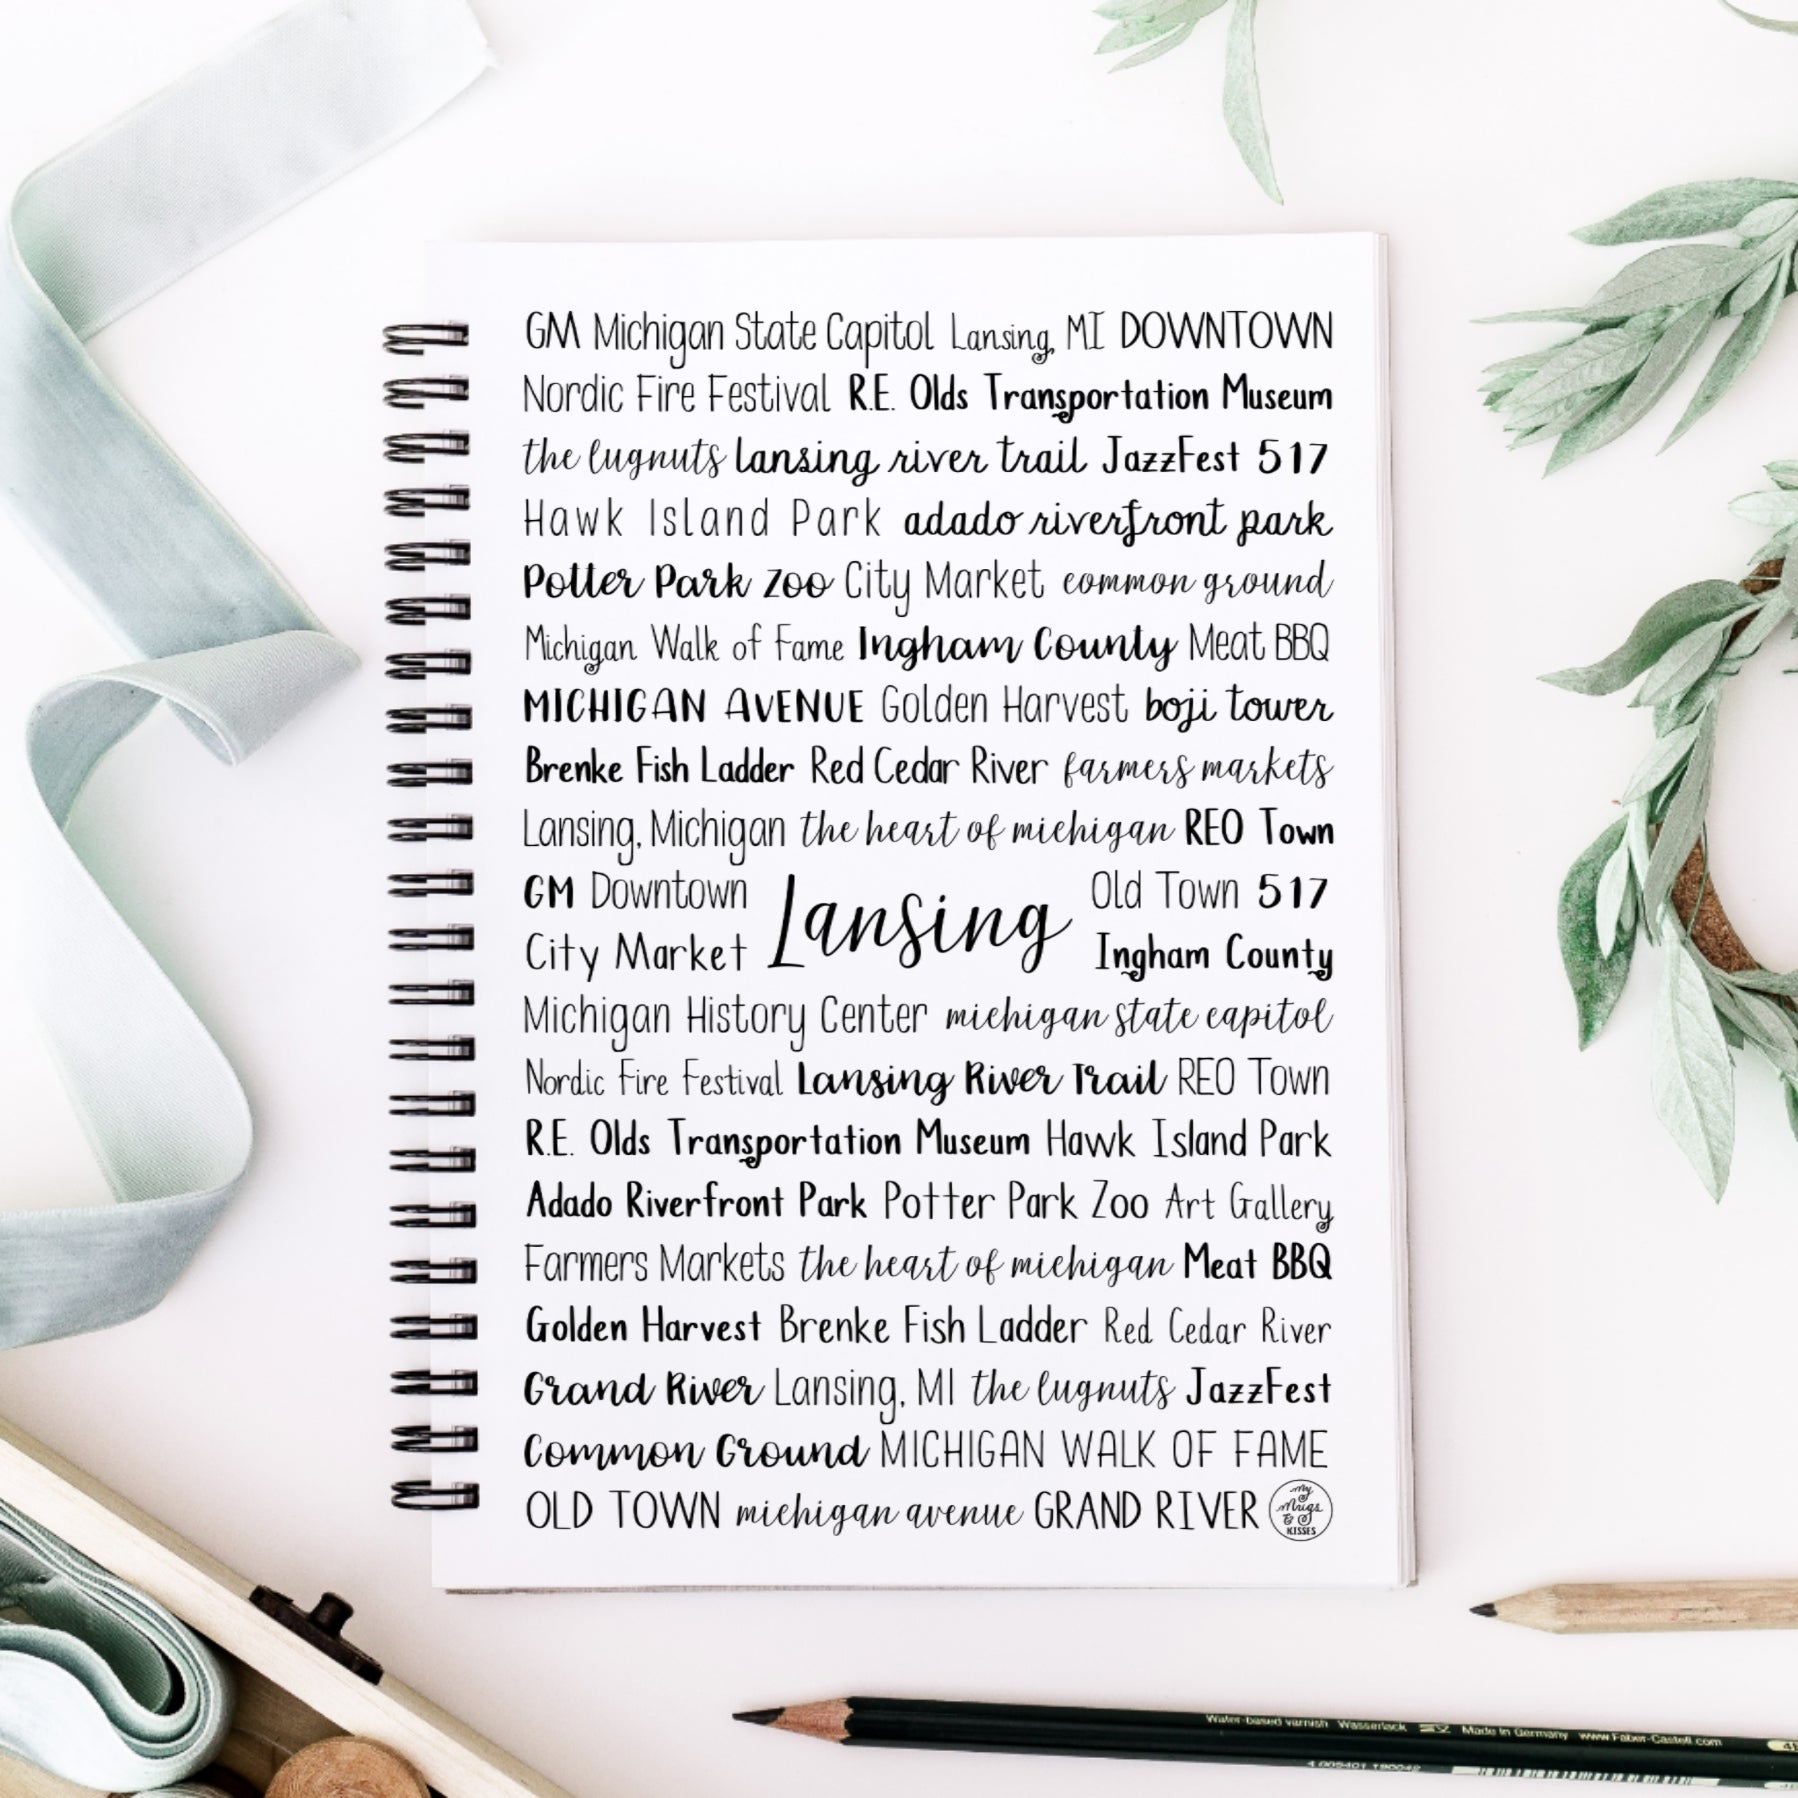 GM Michigan State Capitol Lansing, MI DOWNTOWN
Nordic Fire Festival R.E. Olds Transportation Museum
the lugnuts lansing river trail JazzFest 517
Hawk Island Park adado riverfront park
Potter Park Zoo City Market common ground
Michigan Walk of Fame Ingham County Meat BBQ
MICHIGAN AVENUE Golden Harvest boji tower
Brenke Fish Ladder Red Cedar River farmers markets
Lansing, Michigan the heart of michigan REO Town
GM Downtown Lansing Old Town 517
City Market Ingham County
Michigan History Center michigan state capitol
Nordic Fire Festival Lansing River Trail REO Town
R.E. Olds Transportation Museum Hawk Island Park
Adado Riverfront Park Potter Park Zoo Art Gallery
Farmers Markets the heart of michigan Meat BBQ
Golden Harvest Brenke Fish Ladder Red Cedar River
Grand River Lansing, MI the lugnuts JazzFest
Common Ground MICHIGAN WALK OF FAME
OLD TOWN michigan avenue GRAND RIVER
My
Mugs
&
KISSES
Water-based varnish Wasserlack Made in Germany www.Faber-Castell.com
4 005401 190042